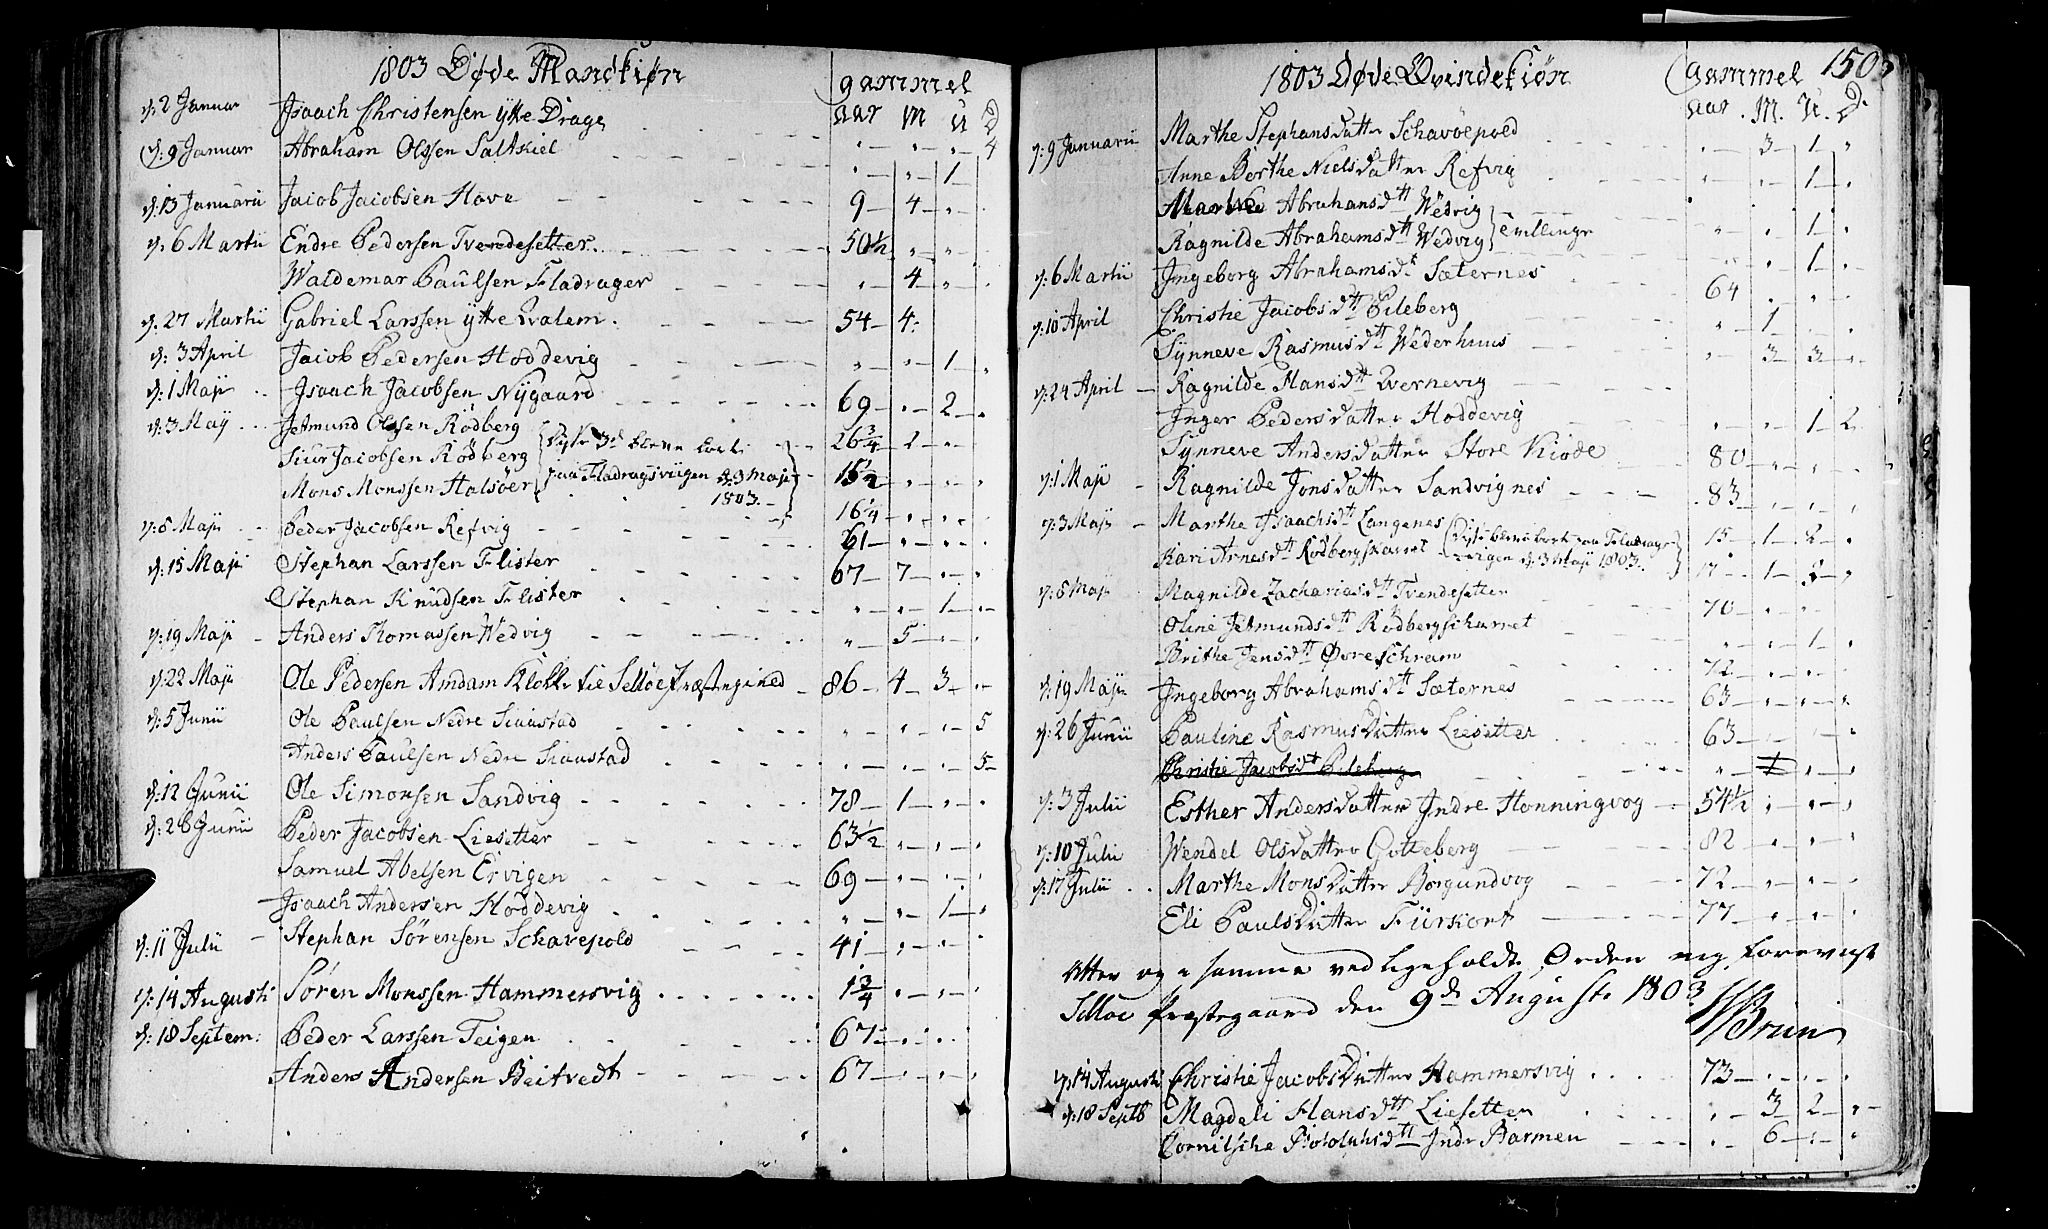 1803 Døde Mandkiøn
gammel
aar M U D
d: 2 Januar Isaach Christensen ytte Drage " " " 4
d: 9 Januar Abraham Olssen Saltkiel " " 1
d: 13 Januarii Jacob Jacobsen Hove 9 4 "
d: 6 Martii Endre Pedersen Tvendesetter 50½ " "
Waldemar Paulsen Fladrager " 4 "
d: 27 Martii Gabriel Larssen ytte Qvalem 54 4
d: 3 April Jacob Pedersen Hoddevig " " 1 "
d: 1 Maji Isaach Jacobsen Nygaard 69 " 2 "
d: 3 May Jetmund Olssen Rødberg 26¾ 2 "
Siur Jacobsen Rødberg disse 3de bleve borte 15½ " "
Mons Monssen Halsøer paa Fladragsviigen d: 3 Maji 16¼ " "
1803
d: 8 Maji Peder Jacobsen Refvig 61 " "
d: 15 Maji Stephan Larssen Flister 67 7 "
Stephan Knudsen Flister " " 1 "
d: 19 Maji Anders Thomassen Wedvig " 5 "
d: 22 Maji Ole Pedersen Amdam Klokker til Selløe Præstegield 86 4 3 "
d: 5 Junii Ole Paulsen Nedre Siaastad " " " 5
Anders Paulsen Nedre Siaastad " " " 5
d: 12 Junii Ole Simonsen Sandvig 78 1 "
d: 26 Junii Peder Jacobsen Liesetter 63½ " "
Samuel Abelsen Ervigen 69 " "
Isaach Andersen Hoddevig " " 1 "
d: 11 Julii Stephan Sørensen Schavepold 41 " "
d: 14 Augusti Søren Monssen Hammersvig 1¾ " "
d: 18 Septem: Peder Larssen Teigen 67 " "
Anders Andersen Beitvedt 67 " "
1803 Døde Qvindekiøn
Gammel 150
aar M. U. D.
d: 9 Januarii Marthe Stephansdatter Schavøepold " 3 1 "
Anne Berthe Nielsdatter Refvig " " 1 "
Abrahamsdtt Wedvig
Ragnilde Abrahamsdtt Wedvig tvillinge " " 1 "
d: 6 Martii Ingeborg Abrahamsdt Sæternes 64 " "
d: 10 April Christie Jacobsdtt Pileberg " 1 "
Synneve Rasmusdtt Wederhuus " 3 3 "
d: 24 April Ragnilde Hansdtt Qvernevig
Inger Pedersdatter Hoddevig " " 1 2
Synneve Andersdatter Store Kiøde 80 " "
d: 1 Maji Ragnilde Jonsdatter Sandvignes 83 " "
d: 3 Maji Marthe Isaachsdtt Langenes disse bleve bort paa Fladrags- 15 1 2 "
Kari Arnesdtt Rødbergskaret viigen d: 3 Maji 1803 17 1 2 "
d: 8 Maji Magnilde Zachariasdtt Tvendesetter 70 " "
Oline Jetmundsdtt Rødbergscharret " " 1 "
Brithe Jensdtt Øvreschram 72 " "
d: 19 Maji Ingeborg Abrahamsdtt Sæternes 63 " "
d: 26 Junii Pauline Rasmusdatter Liesetter 63 " "
Christie Jacobsdt Pileberg " 1 "
d: 3 Julii Esther Andersdatter Indre Honningvog 54½ " "
d: 10 Julii Wendel Olsdatter Gotteberg 82 " "
d: 17 Julii Marthe Monsdatter Borgundvog 72 " "
Eli Paulsdatter Fürkort 77 " "
Atter og i samme vedligeholdte Orden mig foreviist
Selloe Præstegaard den 9de Auguste 1803
Brun
d: 14 Augusti Christie Jacobsdatter Hammersvig 73 " "
d: 18 Septb Magdeli Hansdtt Liesetter " 3 2 "
Cornilsche Indr Barmen " 6 "